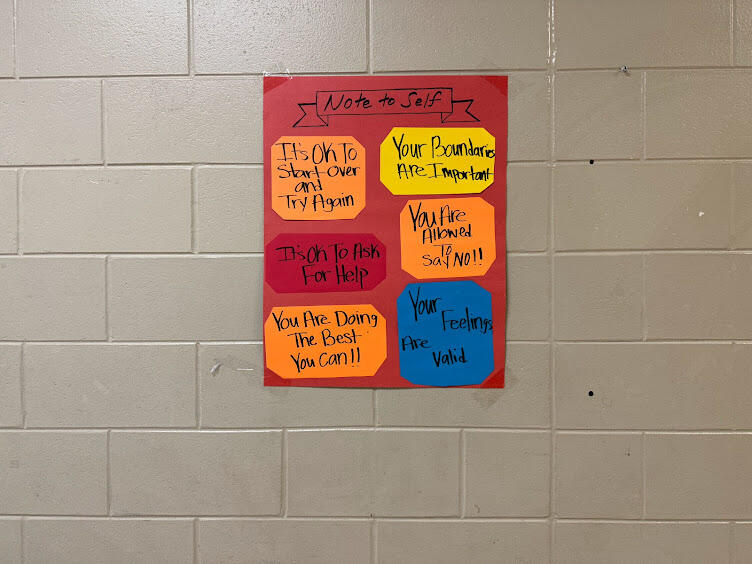 Note to Self
It's OK To
Start over
and
Try Again
Your Boundaries
Are Important
You Are
Allowed
To
Say NO!!
It's OK To Ask
For Help
You Are Doing
The Best
You Can!!
Your
Feelings
Are
Valid